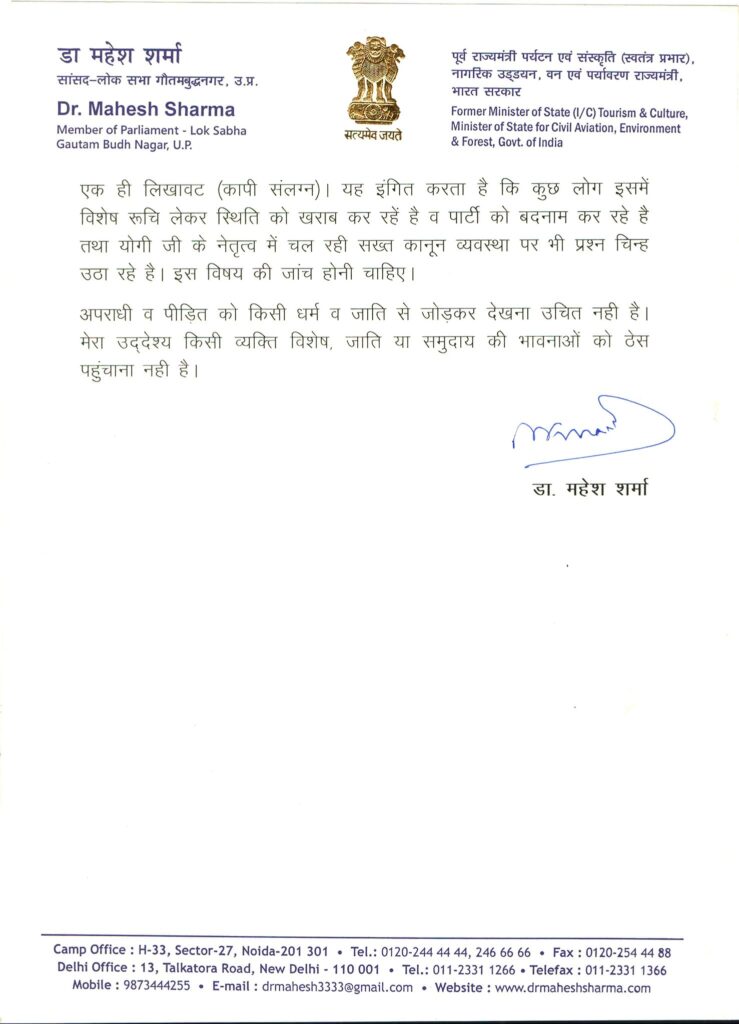 डा महेश शर्मा
सांसद-लोक सभा गौतमबुद्धनगर, उ.प्र.
Dr. Mahesh Sharma
Member of Parliament - Lok Sabha
Gautam Budh Nagar, U.P.
सत्यमेव जयते
पूर्व राज्यमंत्री पर्यटन एवं संस्कृति (स्वतंत्र प्रभार),
नागरिक उड्डयन, वन एवं पर्यावरण राज्यमंत्री,
भारत सरकार
Former Minister of State (I/C) Tourism & Culture,
Minister of State for Civil Aviation, Environment
& Forest, Govt. of India
एक ही लिखावट (कापी संलग्न)। यह इंगित करता है कि कुछ लोग इसमें
विशेष रूचि लेकर स्थिति को खराब कर रहें है व पार्टी को बदनाम कर रहे है
तथा योगी जी के नेतृत्व में चल रही सख्त कानून व्यवस्था पर भी प्रश्न चिन्ह
उठा रहे है। इस विषय की जांच होनी चाहिए।
अपराधी व पीड़ित को किसी धर्म व जाति से जोड़कर देखना उचित नही है।
मेरा उद्देश्य किसी व्यक्ति विशेष, जाति या समुदाय की भावनाओं को ठेस
पहुंचाना नही है।
डा. महेश शर्मा
Camp Office : H-33, Sector-27, Noida-201 301 • Tel.: 0120-244 44 44, 246 66 66 • Fax : 0120-254 44 88
Delhi Office : 13, Talkatora Road, New Delhi - 110 001 • Tel.: 011-2331 1266 • Telefax : 011-2331 1366
Mobile : 9873444255 • E-mail : drmahesh3333@gmail.com • Website : www.drmaheshsharma.com